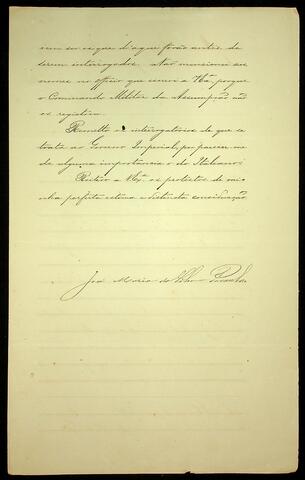 rem ser os que d'aqui forão antes de
serem interrogados. Não menciono seus
nomes no officio que escrevi a V. Exª. porque
o Commando Militar da Assumpção não
os registrou.
Remetto os interrogatorios de que se
trata ao Governo Imperial, por parecer-me
de alguma importancia o do Italiano.
Reitero a V. Exª. os protestos de mi-
nha perfeita estima e distincta consideração.
José Maria da Silva Paranhos